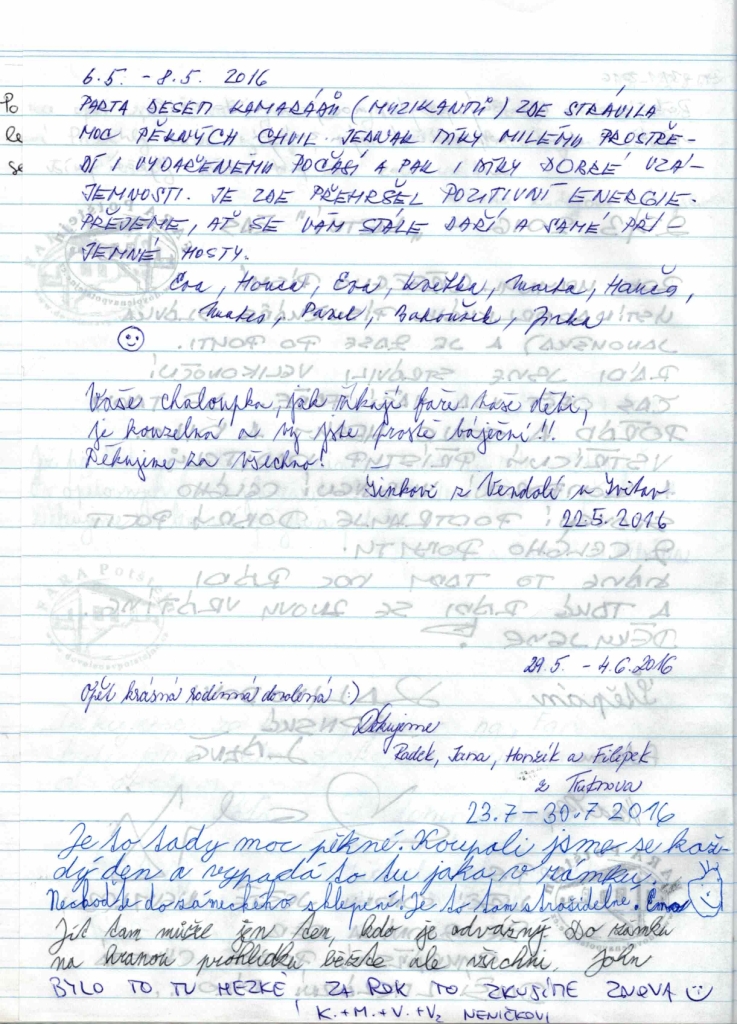 6.5. - 8.5. 2016
PARTA DESETI KAMARÁDŮ (MUZIKANTŮ) ZDE STRÁVILA
MOC PĚKNÝCH CHVIL. JEDNAK DÍKY MILÉMU PROSTŘE-
DÍ I VYDAŘENÉMU POČASÍ A PAK I DÍKY DOBRÉ VZÁ-
JEMNOSTI. JE ZDE PŘEHRŠEL POZITIVNÍ ENERGIE.
PŘEJEME, AŤ SE VÁM STÁLE DAŘÍ A SAMÉ PŘÍ-
JEMNÉ HOSTY.
Eva, Honza, Eva, Květka, Marta,
Pavel, Jirka
Vaše chaloupka, jak říkají faře naše děti,
je kouzelná a vy jste prostě báječní!!.
Děkujeme za všechno!
Šínkovi z Vendolí u Svitav
22.5. 2016
29.5. - 4.6.2016
Opět krásná rodinná dovolená :)
Děkujeme
Radek, Jana, Honzík a Filípek
z Trutnova
23.7-30.7 2016
Je to tady moc pěkné. Koupali jsme se kaž-
dý den a vypadá to tu jako v zámku.
Nechoďte do zámeckého sklepení! Je to tam strašidelné. Ema
Jít tam může jen ten, kdo je odvážný. Do zámku
na hranou prohlídku běžte ale všichni. John
BYLO TO TU HEZKÉ ZA ROK TO ZKUSÍME ZNOVA
K.+M.+V.+V2 NENIČKOVI
Po
le
se